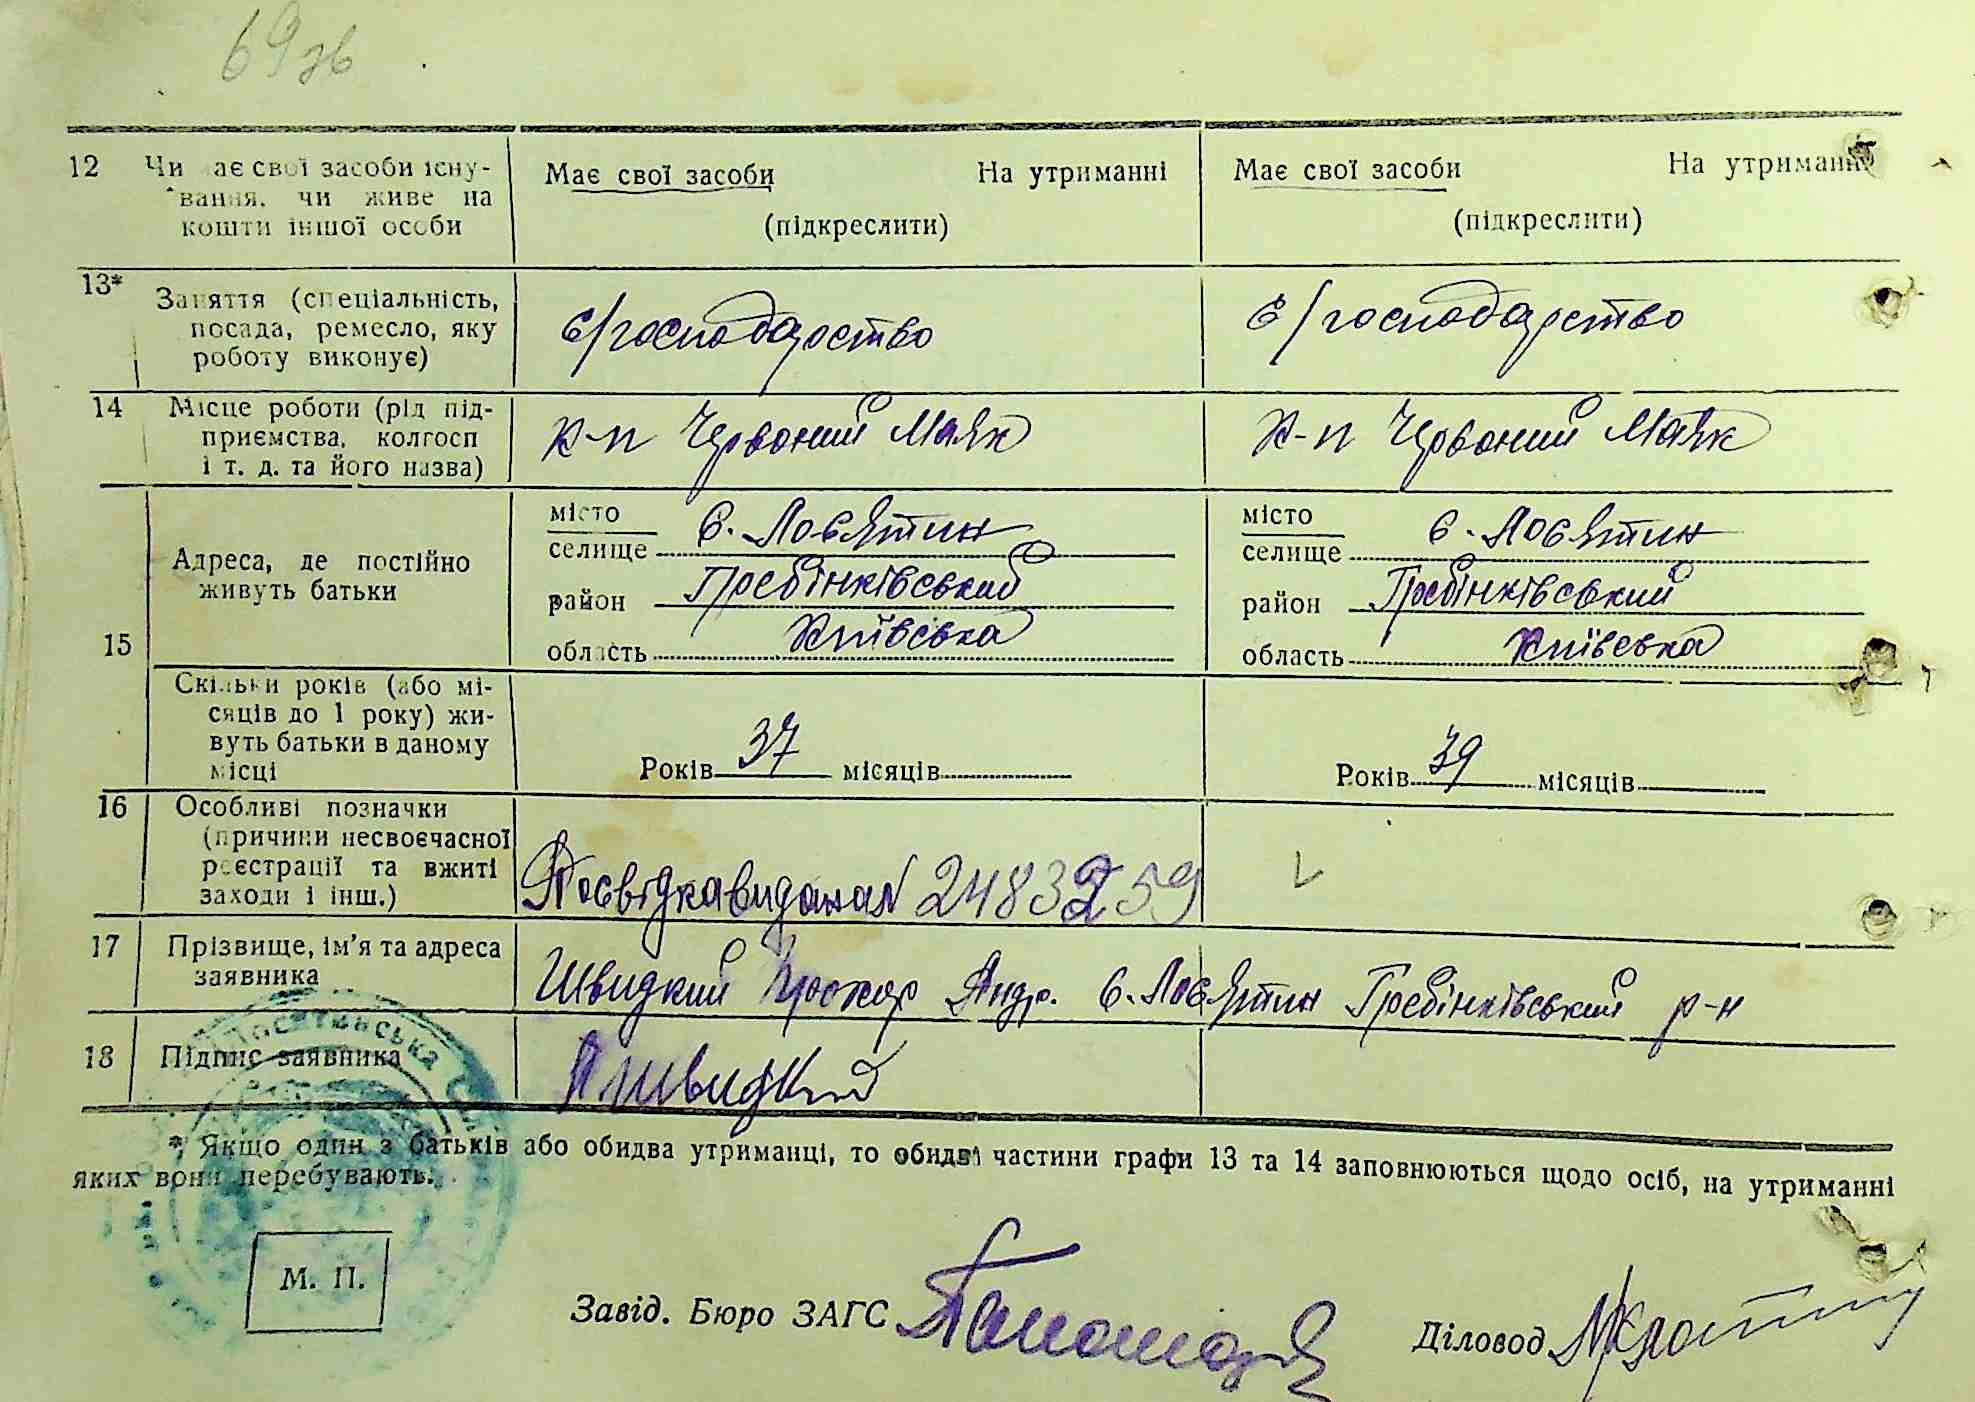 69 зв
12 Чи має свої засоби існу-
вання, чи живе на
кошти іншої особи
Має свої засоби На утриманні
(підкреслити)
Має свої засоби На утриманні
(підкреслити)
13* Заняття (спеціальність,
посада, ремесло, яку
роботу виконує)
с/господарство
с/господарство
14 Місце роботи (рід під-
приємства, колгосп
і т. д. та його назва)
к-п Червоний Маяк
к-п Червоний Маяк
15
Адреса, де постійно
живуть батьки
місто
селище с. Лосятин
район Гребінківський
область Київська
місто
селище с. Лосятин
район Гребінківський
область Київська
Скільки років (або мі-
сяців до 1 року) жи-
вуть батьки в даному
місці
Років 37 місяців
Років 39 місяців
16 Особливі позначки
(причини несвоєчасної
реєстрації та вжиті
заходи і інш.)
Посвідка видана № 2483259
17 Прізвище, ім'я та адреса
заявника
Швидкий Прохор Андр. с. Лосятин Гребінківський р-н
18 Підпис заявника
Швидкий
* Якщо один з батьків або обидва утриманці, то обидві частини графи 13 та 14 заповнюються щодо осіб, на утриманні
яких вони перебувають.
М. П.
Завід. Бюро ЗАГС
Діловод